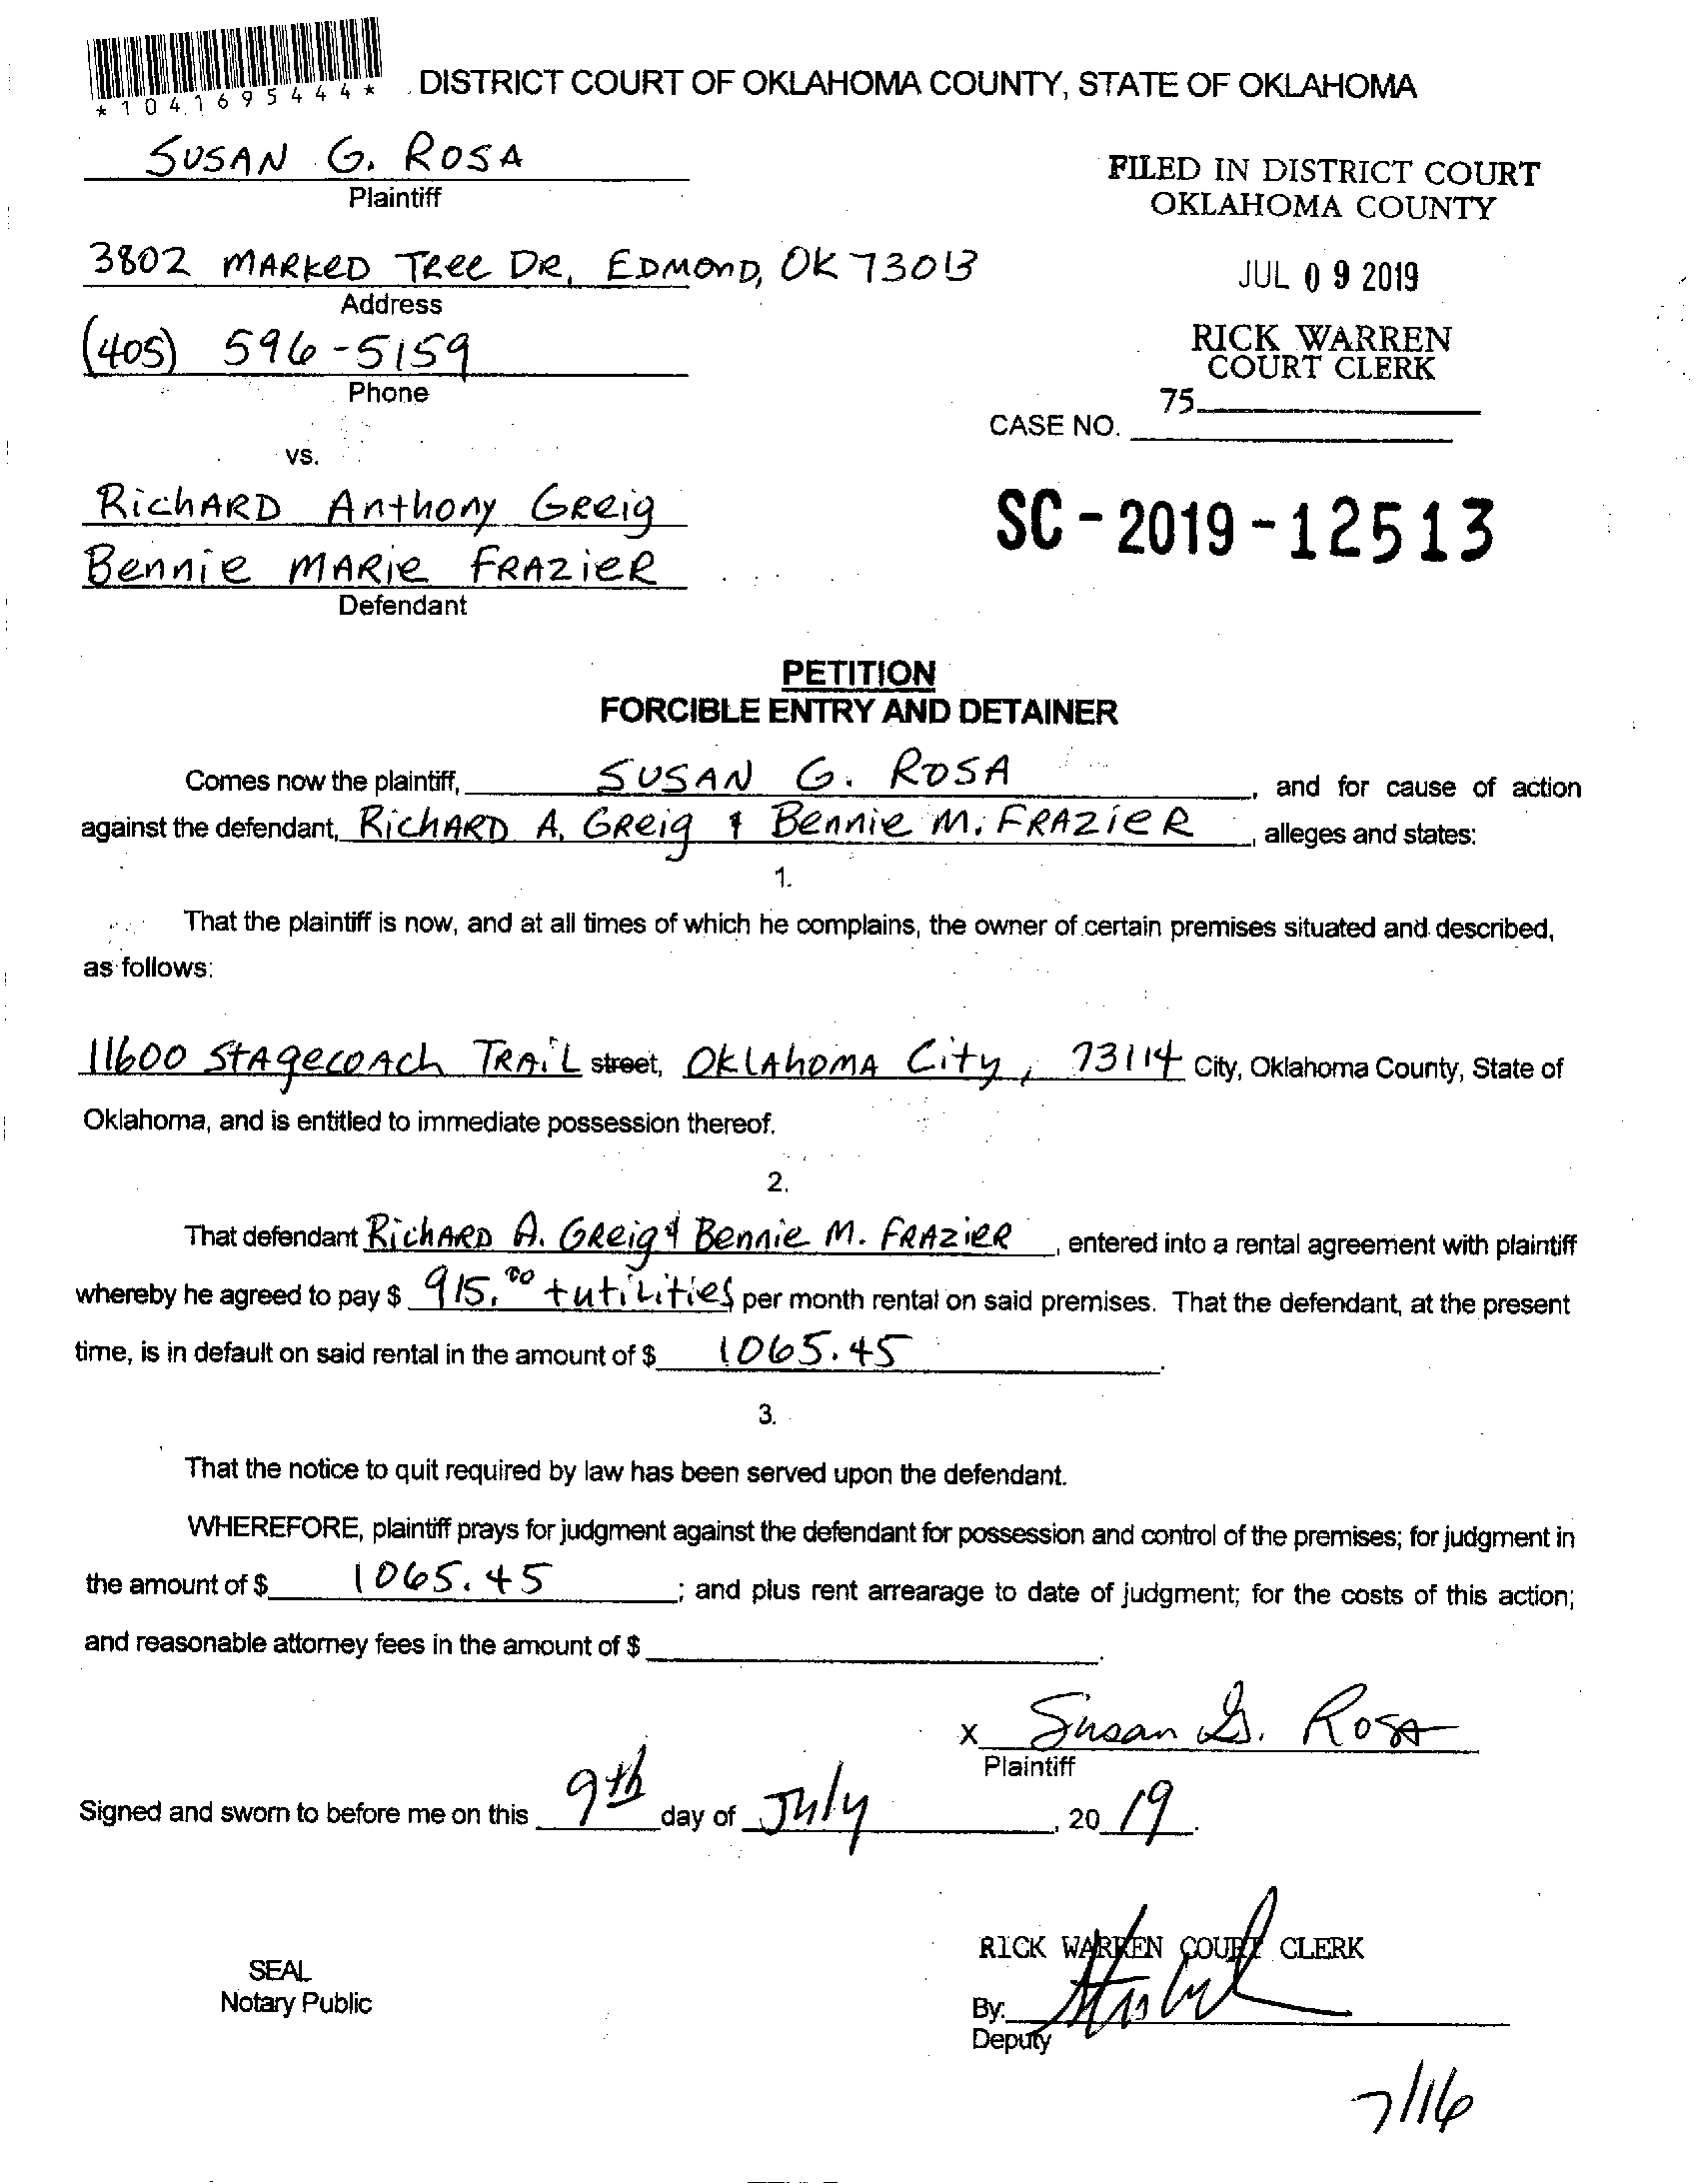 *1041695444*
DISTRICT COURT OF OKLAHOMA COUNTY, STATE OF OKLAHOMA
SUSAN G. ROSA
Plaintiff
FILED IN DISTRICT COURT
OKLAHOMA COUNTY
3802 MARKED TREE DR, EDMOND, OK 73013
Address
JUL 09 2019
(405) 596-5159
Phone
RICK WARREN
COURT CLERK
75
CASE NO.
vs.
RICHARD Anthony GREIG
Bennie MARIE FRAZIER
Defendant
SC-2019-12513
PETITION
FORCIBLE ENTRY AND DETAINER
Comes now the plaintiff, SUSAN G. ROSA, and for cause of action
against the defendant, RICHARD A. GREIG & Bennie M. FRAZIER, alleges and states:
1.
That the plaintiff is now, and at all times of which he complains, the owner of certain premises situated and described,
as follows:
11600 STAGECOACH TRAIL street, OKLAHOMA City, 73114 City, Oklahoma County, State of
Oklahoma, and is entitled to immediate possession thereof.
2.
That defendant RICHARD A. GREIG & Bennie M. FRAZIER, entered into a rental agreement with plaintiff
whereby he agreed to pay $ 915.00 + utilities per month rental on said premises. That the defendant, at the present
time, is in default on said rental in the amount of $ 1065.45.
3.
That the notice to quit required by law has been served upon the defendant.
WHEREFORE, plaintiff prays for judgment against the defendant for possession and control of the premises; for judgment in
the amount of $ 1065.45; and plus rent arrearage to date of judgment; for the costs of this action;
and reasonable attorney fees in the amount of $ .
x Susan G. Rosa
Plaintiff
Signed and sworn to before me on this 9th day of July, 20 19.
RICK WARREN COURT CLERK
SEAL
Notary Public
By:
Deputy
7/16